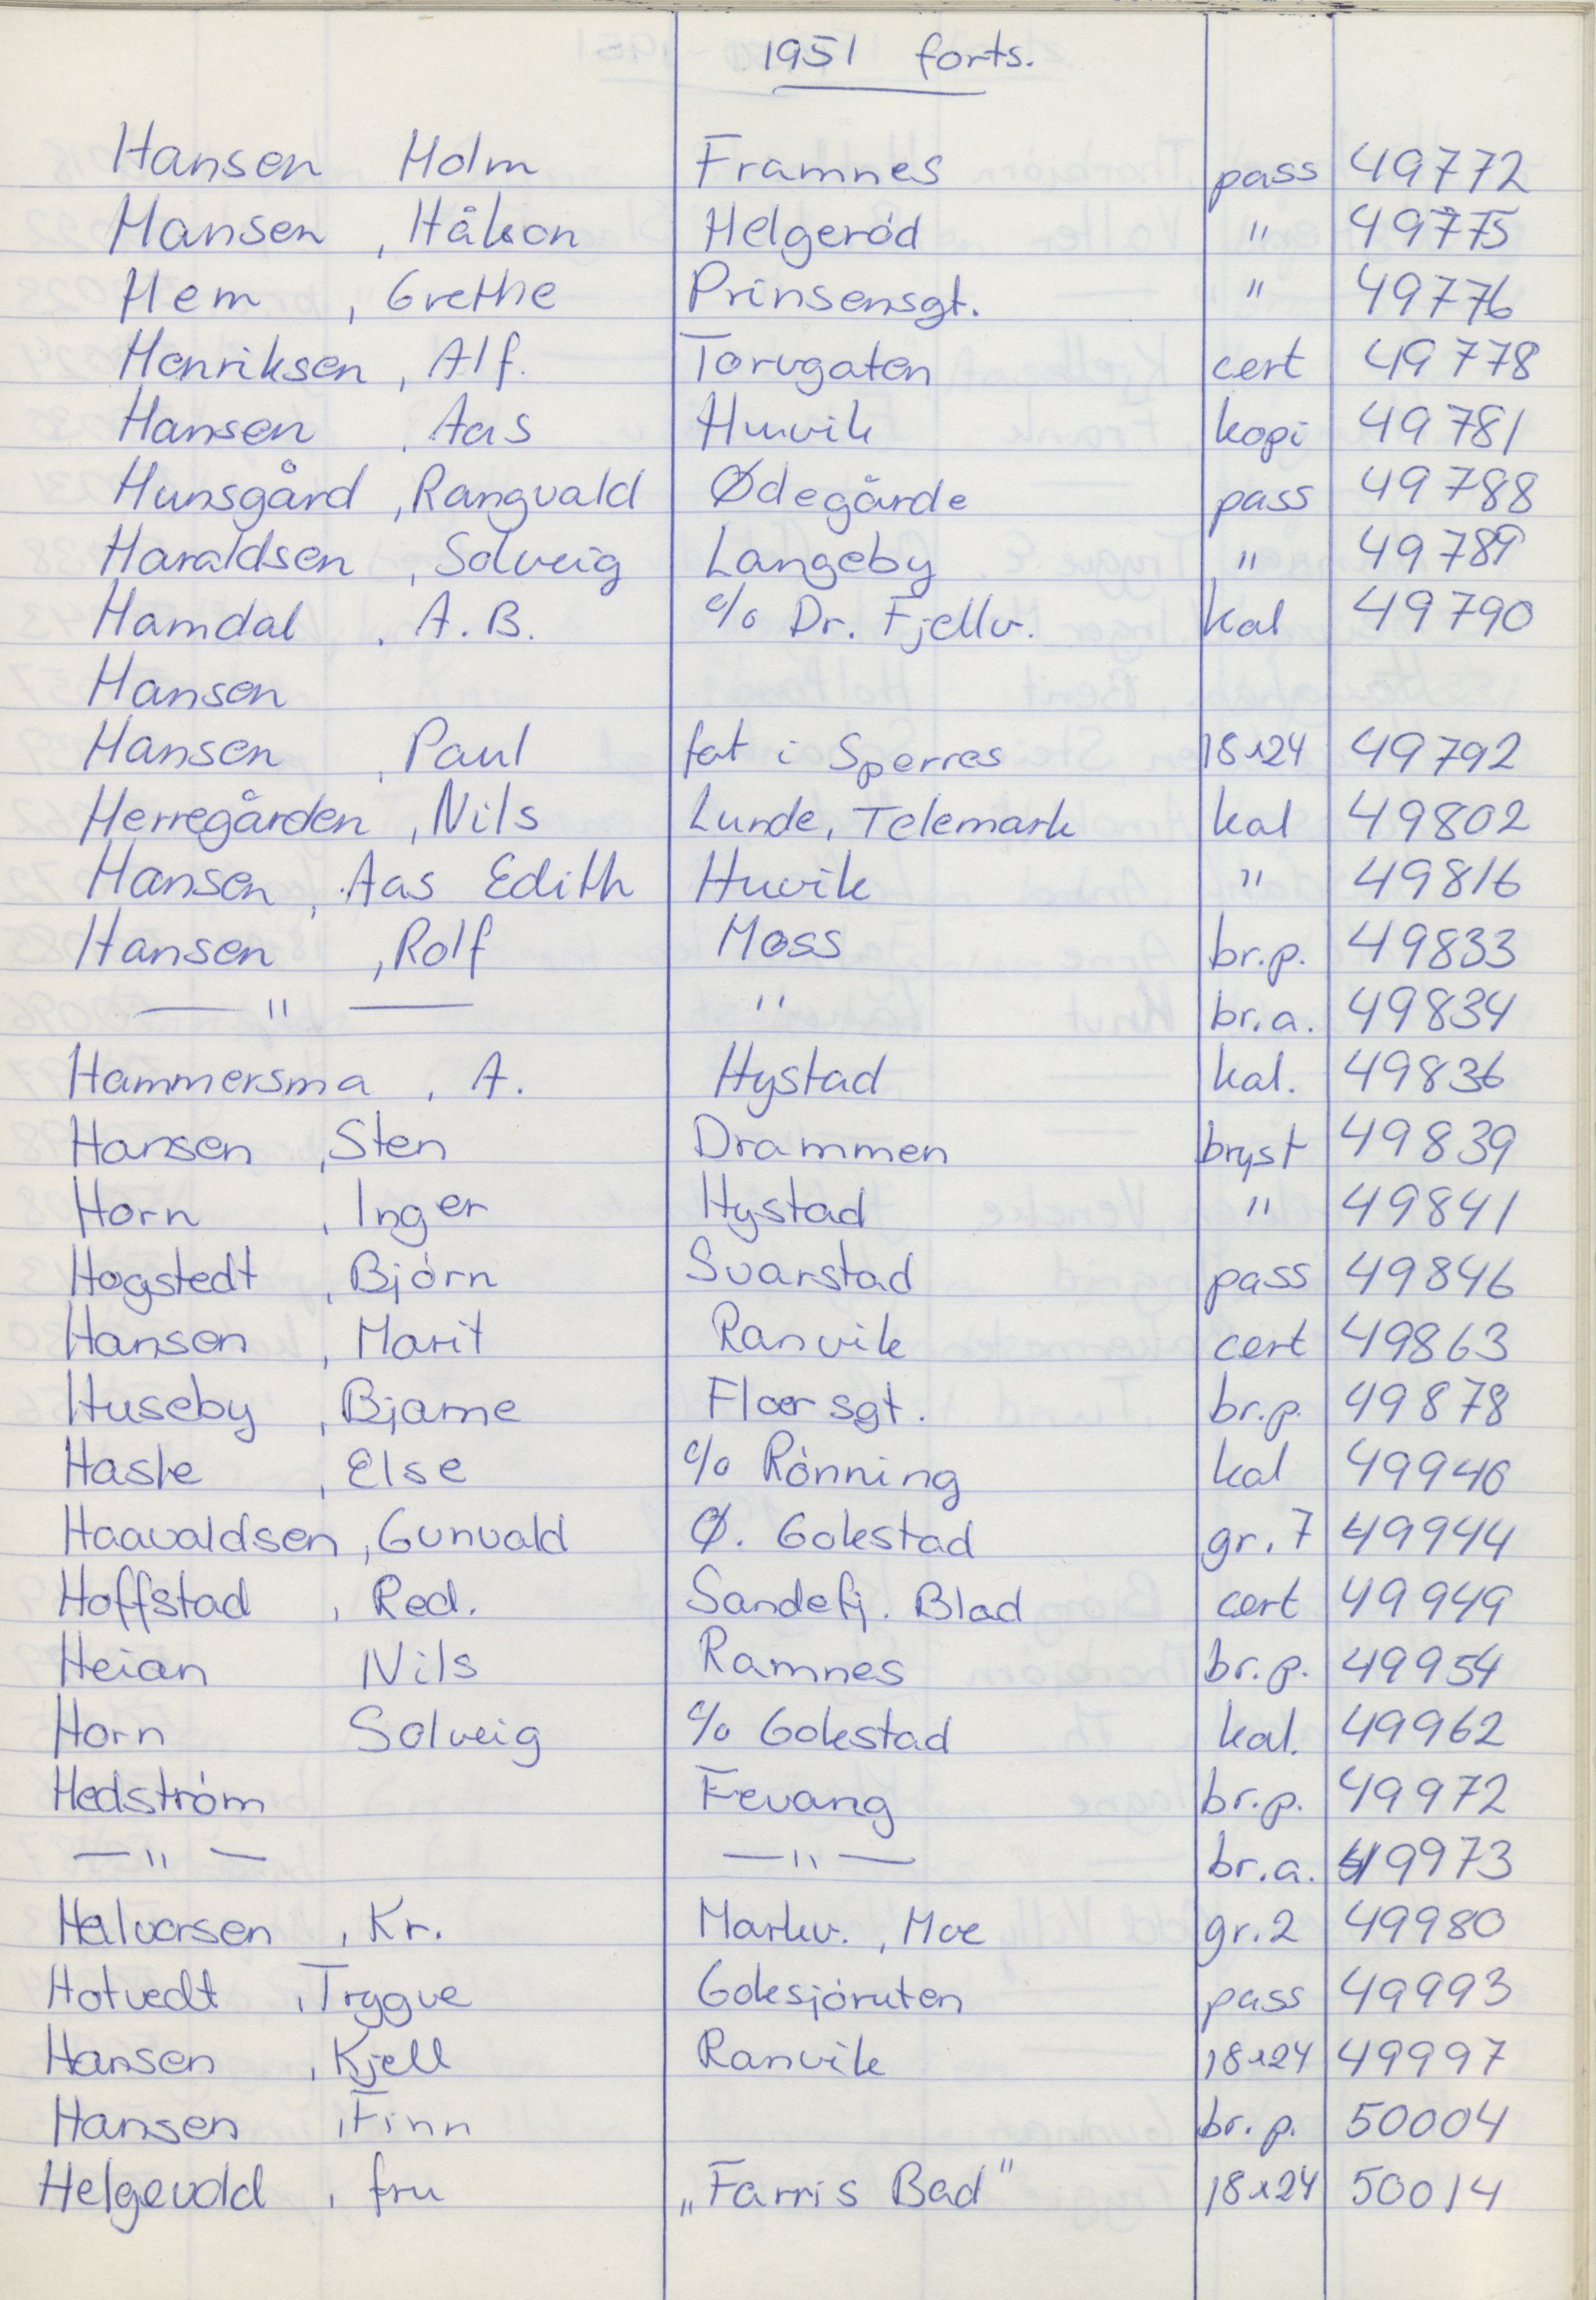 1951 forts.
Hansen Holm Framnes pass 49772
Hansen , Håkon Helgeród " 49775
Hem , Grethe Prinsensgt. " 49776
Henriksen , Alf. Torvgaten cert 49778
Hansen , Aas Huvik kopi 49781
Hunsgård , Rangvald Ødegårde pass 49788
Haraldsen , Solveig Langeby " 49789
Hamdal , A.B. c/o Dr. Fjellv. kal 49790
Hansen
Hansen , Paul fat i Sperres 18x24 49792
Herregården , Nils Lunde, Telemark kal 49802
Hansen , Aas Edith Huvik " 49816
Hansen , Rolf Moss br.p. 49833
— " — " br.a. 49834
Hammersma , A. Hystad kal. 49836
Hansen , Sten Drammen bryst 49839
Horn , Inger Hystad " 49841
Hogstedt , Bjórn Svarstad pass 49846
Hansen , Marit Ranvik cert 49863
Huseby , Bjarne Floorsgt. br.p. 49878
Haske , Else c/o Rónning kal 49940
Haavaldsen , Gunvald Ø. Gokestad gr. 7 49944
Hoffstad , Red. Sandefj. Blad cert 49949
Heian Nils Ramnes br.p. 49954
Horn Solveig c/o Gokestad kal. 49962
Hedstróm Fevang br.p. 49972
— " — — " — br.a. 49973
Halvorsen , Kr. Markv. , Moe gr. 2 49980
Hotvedt , Trygve Goksjóruten pass 49993
Hansen , Kjell Ranvik 18x24 49997
Hansen , Finn br.p. 50004
Helgevold , fru „Farris Bad" 18x24 50014